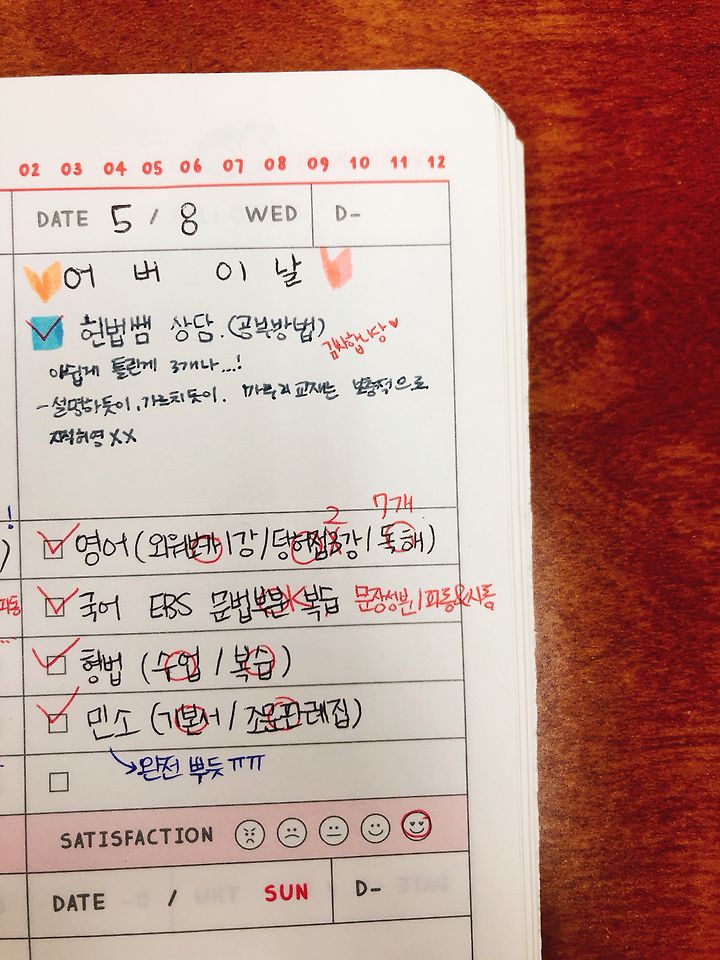 02 03 04 05 06 07 08 09 10 11 12
DATE 5 / 8 WED D-
어 버 이 날
헌법쌤 상담. (공부방법)
감사합니당♥
아쉽게 틀린게 3개나...!
- 설명하듯이, 가르치듯이. 마무리 교재는 보충적으로
XX
!
2 7개
영어 (외워보카 1강 / 당허접 강 / 독해)
국어 EBS 문법부분 복습 문장성분 / 피동&사동
형법 (수업 / 복습)
민소 (기본서 / 조문판례집)
완전 뿌듯 ㅠㅠ
SATISFACTION
DATE / SUN D-